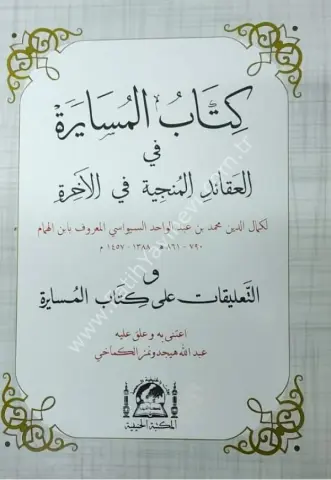 كِتَابُ المُسَايَرَة
في
العَقائدِ المُنجِية في الآخِرَة
لكمال الدين محمد بن عبد الواحد السيواسي المعروف بابن الهمام
٧٩٠ - ٨٦١ هـ ١٣٨٨ - ١٤٥٧ م
و
التعليقات على كِتَاب المسايرة
اعتنى به وعلق عليه
عبد الله هيجدونمز الكماخي
المكتبة الحنيفية